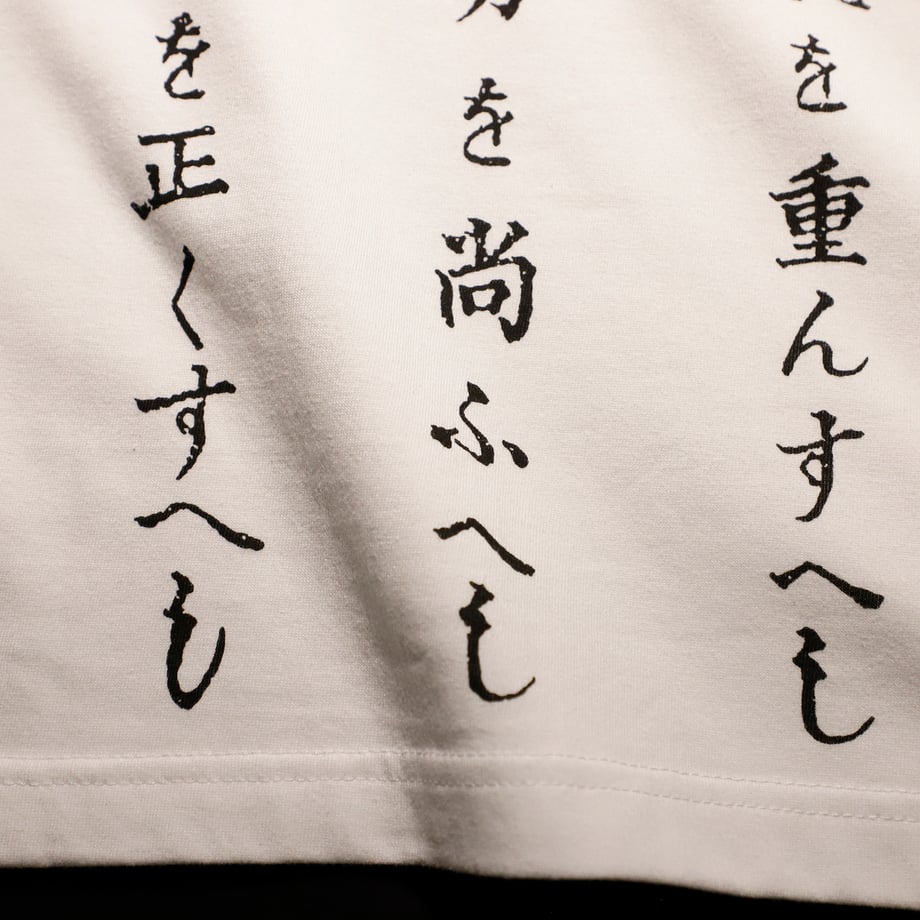 を重んすへし
を尚ふへし
を正くすへし